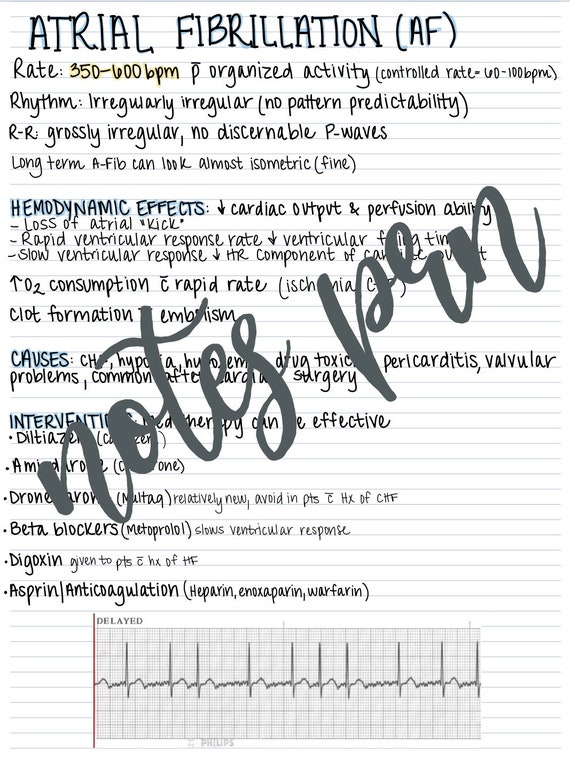 ATRIAL FIBRILLATION (AF)
Rate: 350-600bpm p̄ organized activity (controlled rate= 60-100bpm)
Rhythm: Irregularly irregular (no pattern predictability)
R-R: grossly irregular, no discernable P-waves
Long term A-Fib can look almost isometric (fine)
HEMODYNAMIC EFFECTS: ↓ cardiac output & perfusion ability
- Loss of atrial "kick"
- Rapid ventricular response rate ↓ ventricular time
- Slow ventricular response ↓ HR component of
↑O2 consumption c̄ rapid rate
Clot formation embolism
CAUSES: drug pericarditis, valvular
problems, common after surgery
INTERVENTIONS: can be effective
• Diltiazem
•
• (Multaq) relatively new, avoid in pts c̄ Hx of CHF
• Beta blockers (Metoprolol) slows ventricular response
• Digoxin given to pts c̄ hx of HF
• Asprin/Anticoagulation (Heparin, enoxaparin, warfarin)
notes pen
DELAYED
PHILIPS